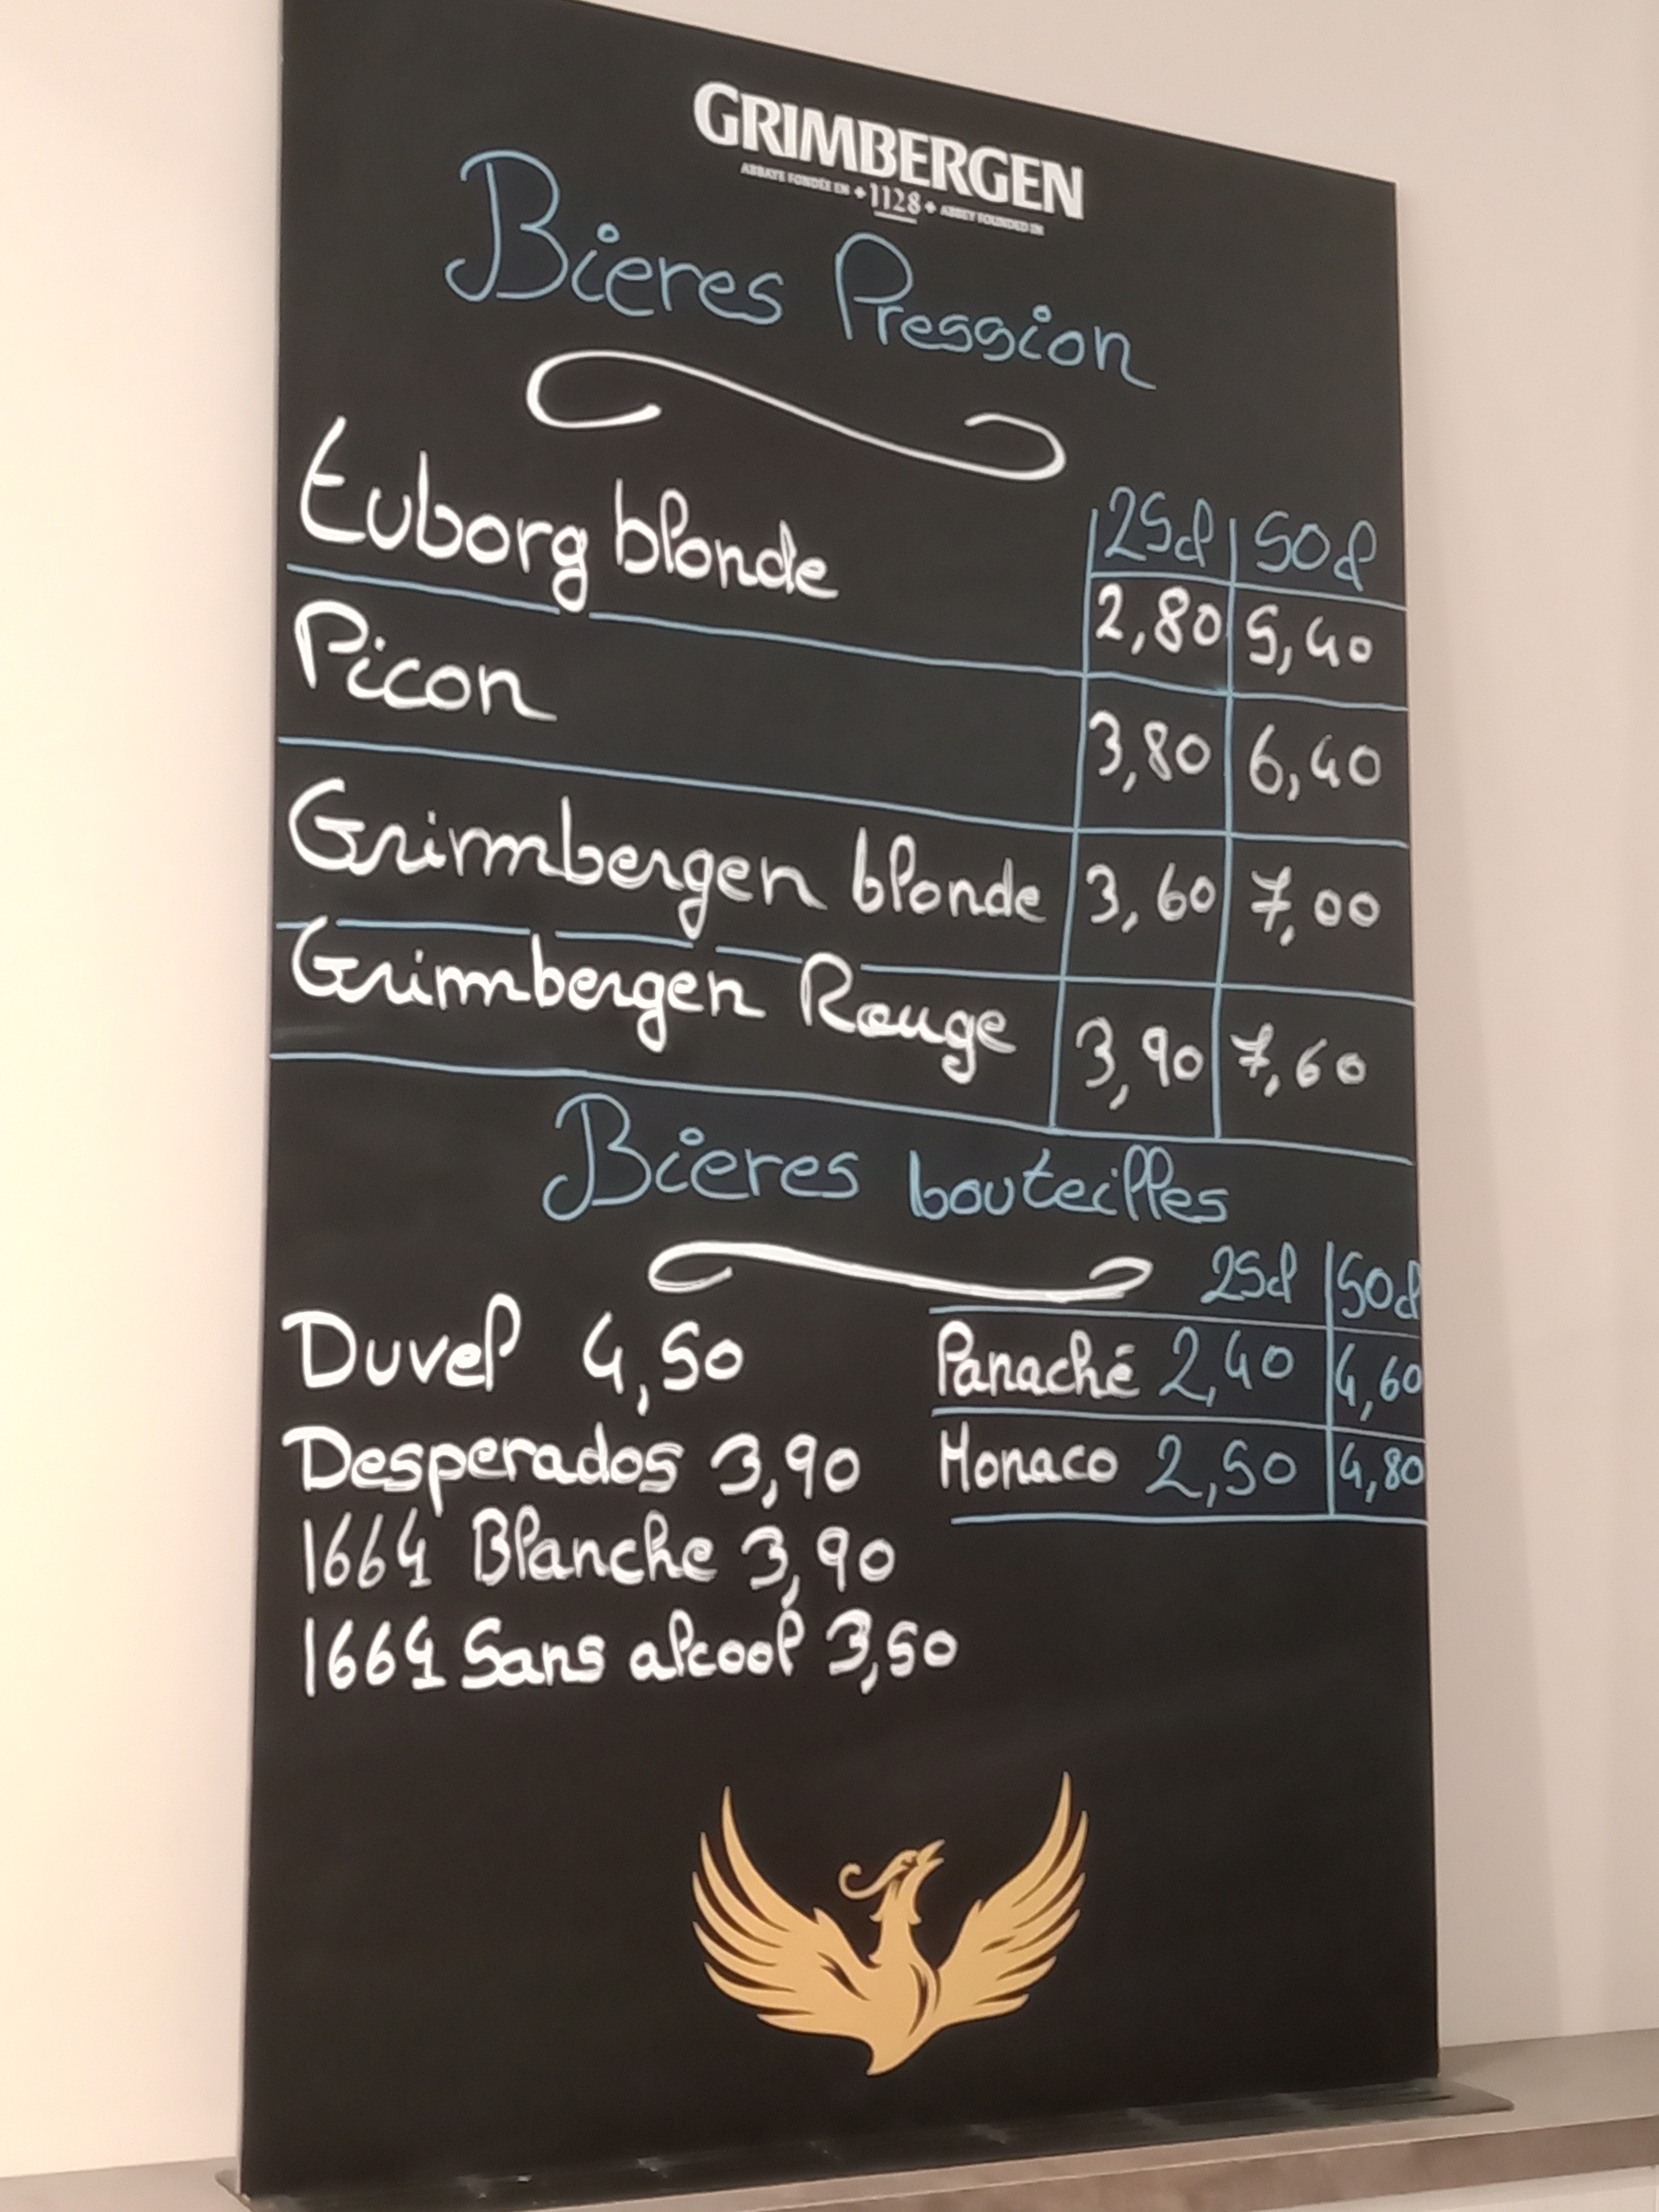 GRIMBERGEN
ABBAYE FONDÉE EN 1128 ABBEY FOUNDED IN
Bieres Pression
25cl 50cl
Tuborg blonde 2,80 5,40
Picon 3,80 6,40
Grimbergen blonde 3,60 7,00
Grimbergen Rouge 3,90 7,60
Bieres bouteilles
25cl 50cl
Duvel 4,50 Panaché 2,40 4,60
Desperados 3,90 Monaco 2,50 4,80
1664 Blanche 3,90
1664 Sans alcool 3,50